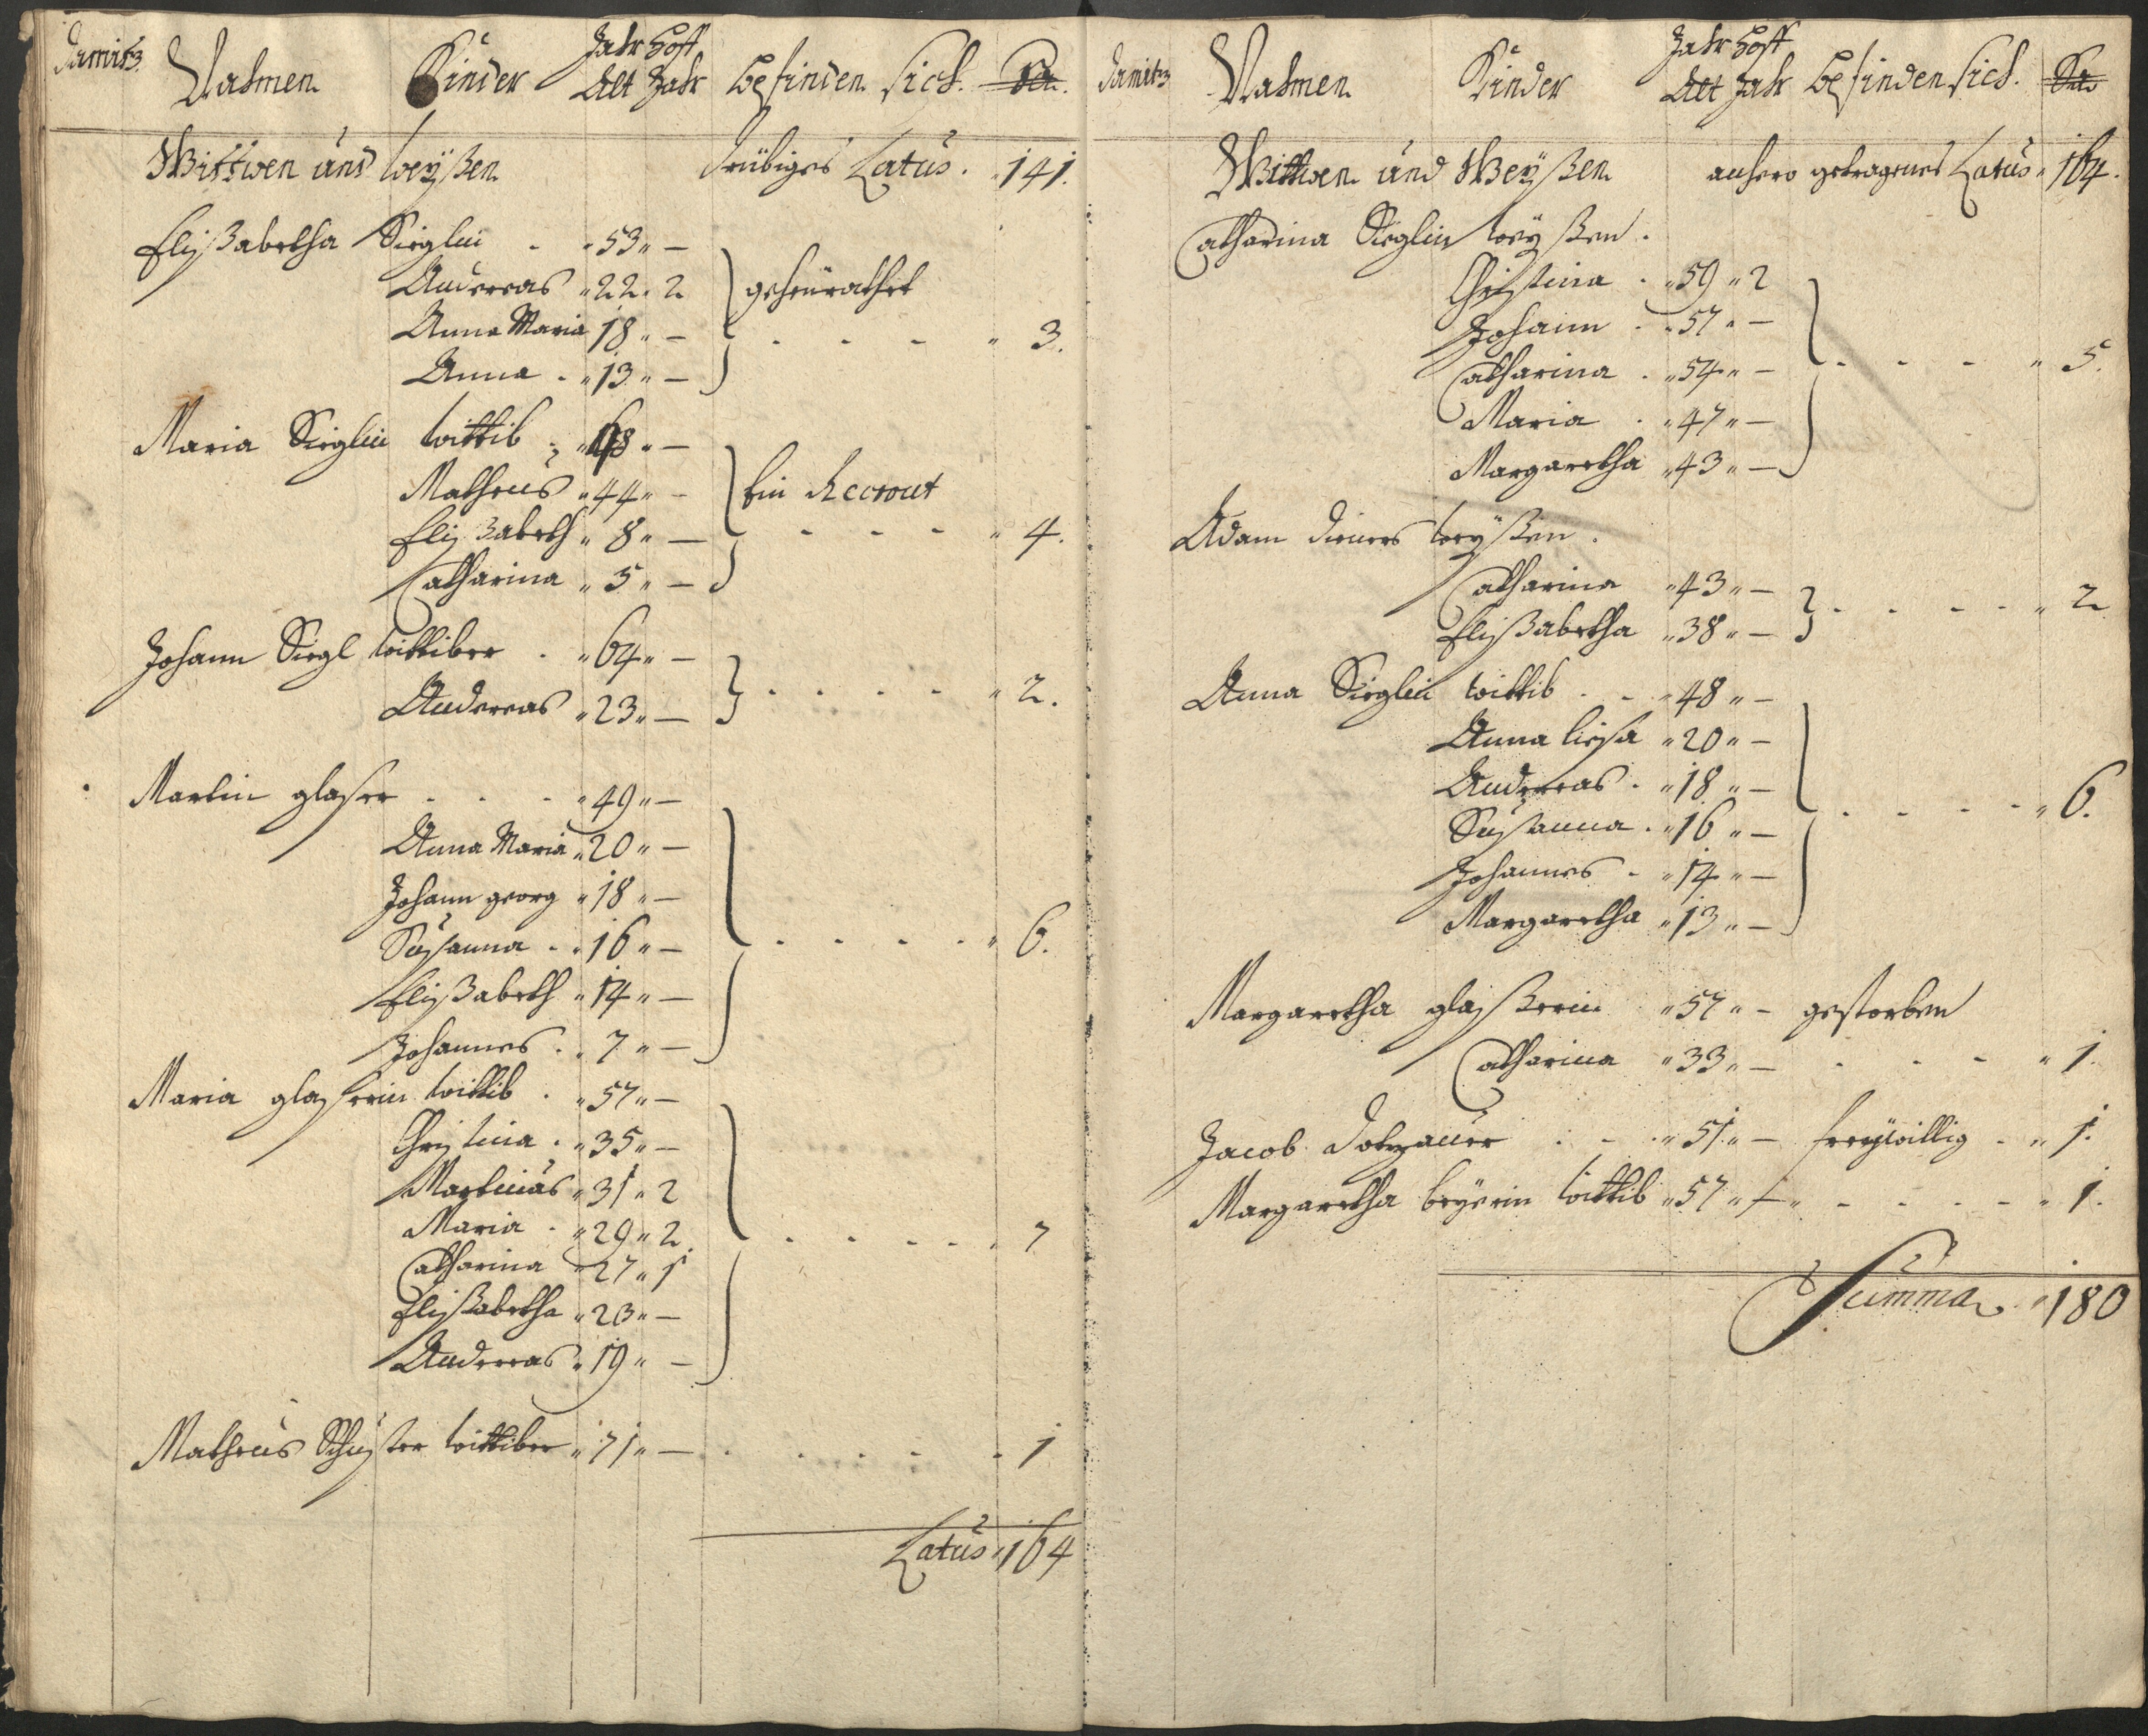 Damitz
Nahmen Kinder Jahr Alt Hoff Jahr befinden sich. Sa.
Wittwen und weyßen drübiges Latus. 141.
Elißabetha Sieglin - " 53 " -
Andereas " 22 " 2 geheurathet
Anna Maria 18 " - - - - " 3.
Anna - " 13 " -
Maria Sieglin wittib " 48 " -
Matheus " 44 " - Ein Recrout
Elißabeth " 8 " - - - - " 4.
Catharina " 5 " -
Johann Siegl wittiber . " 64 " -
Andereas " 23 " - - - - - " 2.
Martin glaser - - - " 49 " -
Anna Maria " 20 " -
Johann georg " 18 " -
Susanna - " 16 " - - - - - " 6.
Elißabeth " 14 " -
Johannes . " 7 " -
Maria glaserin wittib . " 57 " -
Christina . " 35 " -
Martinus " 31 " 2
Maria - " 29 " 2 - - - - " 7
Catharina " 27 " 1
Elißabetha " 23 " -
Andereas " 19 " -
Matheus Schuster wittiber " 71 " - - - - - 1
Latus " 164
Damitz
Nahmen Kinder Jahr Alt Hoff Jahr befinden sich. Sa.
Wittwen und Weyßen anhero getragenes Latus " 164.
Catharina Sieglin weyßen.
Christina . " 59 " 2
Johann . " 57 " -
Catharina . " 54 " - - - - " 5.
Maria . " 47 " -
Margaretha " 43 " -
Adam dieners weyßen .
Catharina " 43 " - - - - - " 2
Elißabetha " 38 " -
Anna Sieglin wittib . - " 48 " -
Anna liesa " 20 " -
Andereas . " 18 " -
Susanna . " 16 " - - - - - " 6.
Johannes . " 14 " -
Margaretha " 13 " -
Margaretha glaßerin " 57 " - gestorben
Catharina " 33 " - - - - " 1.
Jacob Dotzauer . - " 51 " - freywillig - " 1.
Margaretha beyerin wittib " 57 " - - - - - " 1.
Summa " 180